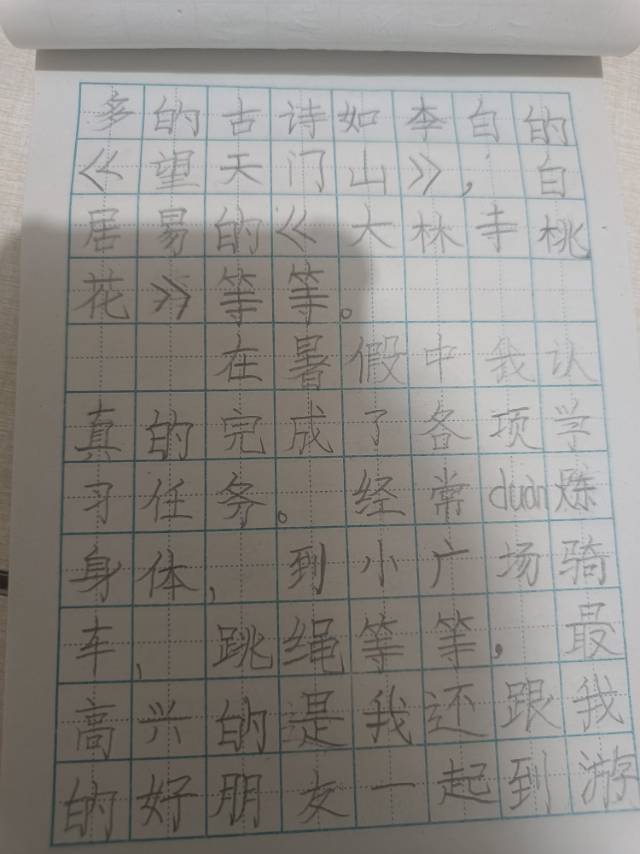 多的古诗如李白的
《望天门山》，白
居易的《大林寺桃
花》等等。
在暑假中我认
真的完成了各项学
习任务。经常duàn炼
身体，到小广场骑
车、跳绳等等，最
高兴的是我还跟我
的好朋友一起到游